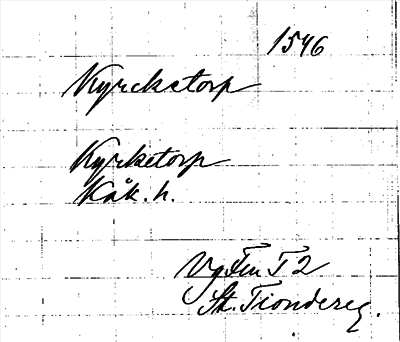 1546
Kyrckstorp
Kyrketorp
Kåk. h.
Vg Fen T 2
Sk. Tiondereg.